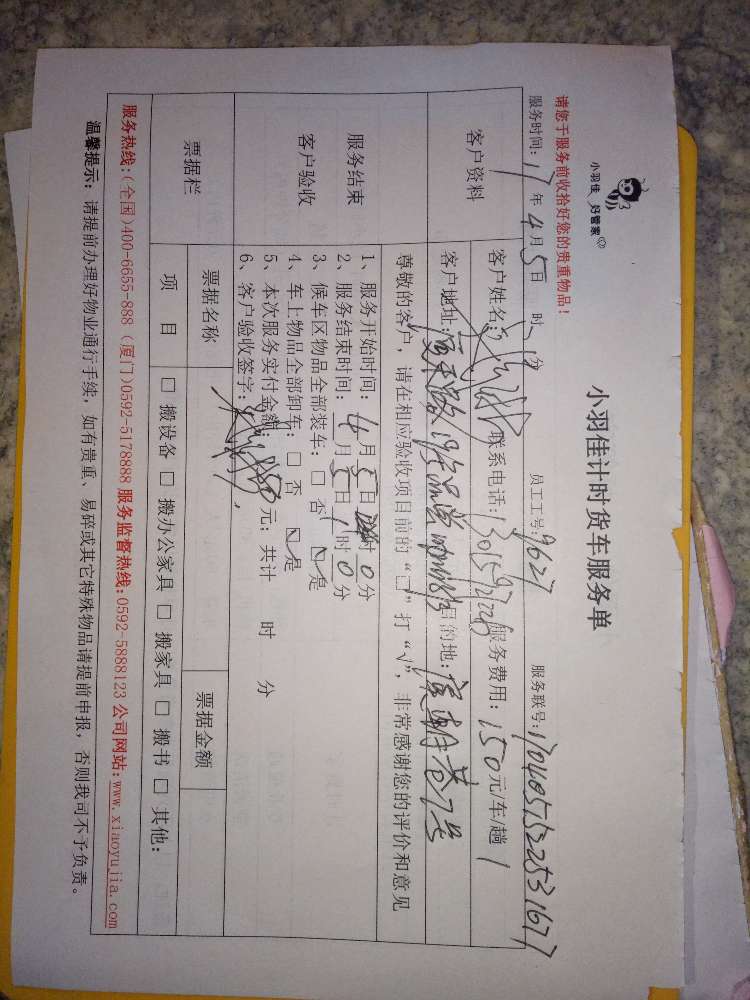 小羽佳 好管家
小羽佳计时货车服务单
请您于服务前收拾好您的贵重物品！
服务时间：17年4月5日 时 分 员工工号：9627 服务联号：
客户资料
客户姓名： 联系电话： 服务费用：150元/车/趟
客户地址： 目的地：
尊敬的客户，请在相应验收项目前的“□”打“√”，非常感谢您的评价和意见
服务结束
客户验收
1、服务开始时间：4月5日 时0分
2、服务结束时间：4月5日1时0分
3、候车区物品全部装车：□ 否 ☑ 是
4、车上物品全部卸车：□ 否 ☑ 是
5、本次服务实付金额：150元；共计 时 分
6、客户验收签字：
票据栏
票据名称 票据金额
项 目 □ 搬设备 □ 搬办公家具 □ 搬家具 □ 搬书 □ 其他：
服务热线：(全国)400-6655-888 (厦门)0592-5178888 服务监督热线：0592-5888123 公司网站：www.xiaoyujia.com
温馨提示：请提前办理好物业通行手续，如有贵重、易碎或其它特殊物品请提前申报，否则我司不予负责。